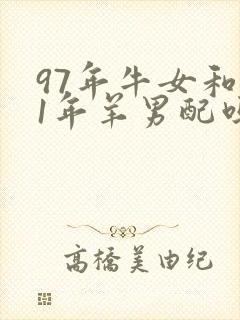 97年牛女和
1年羊男配
高橋美由纪